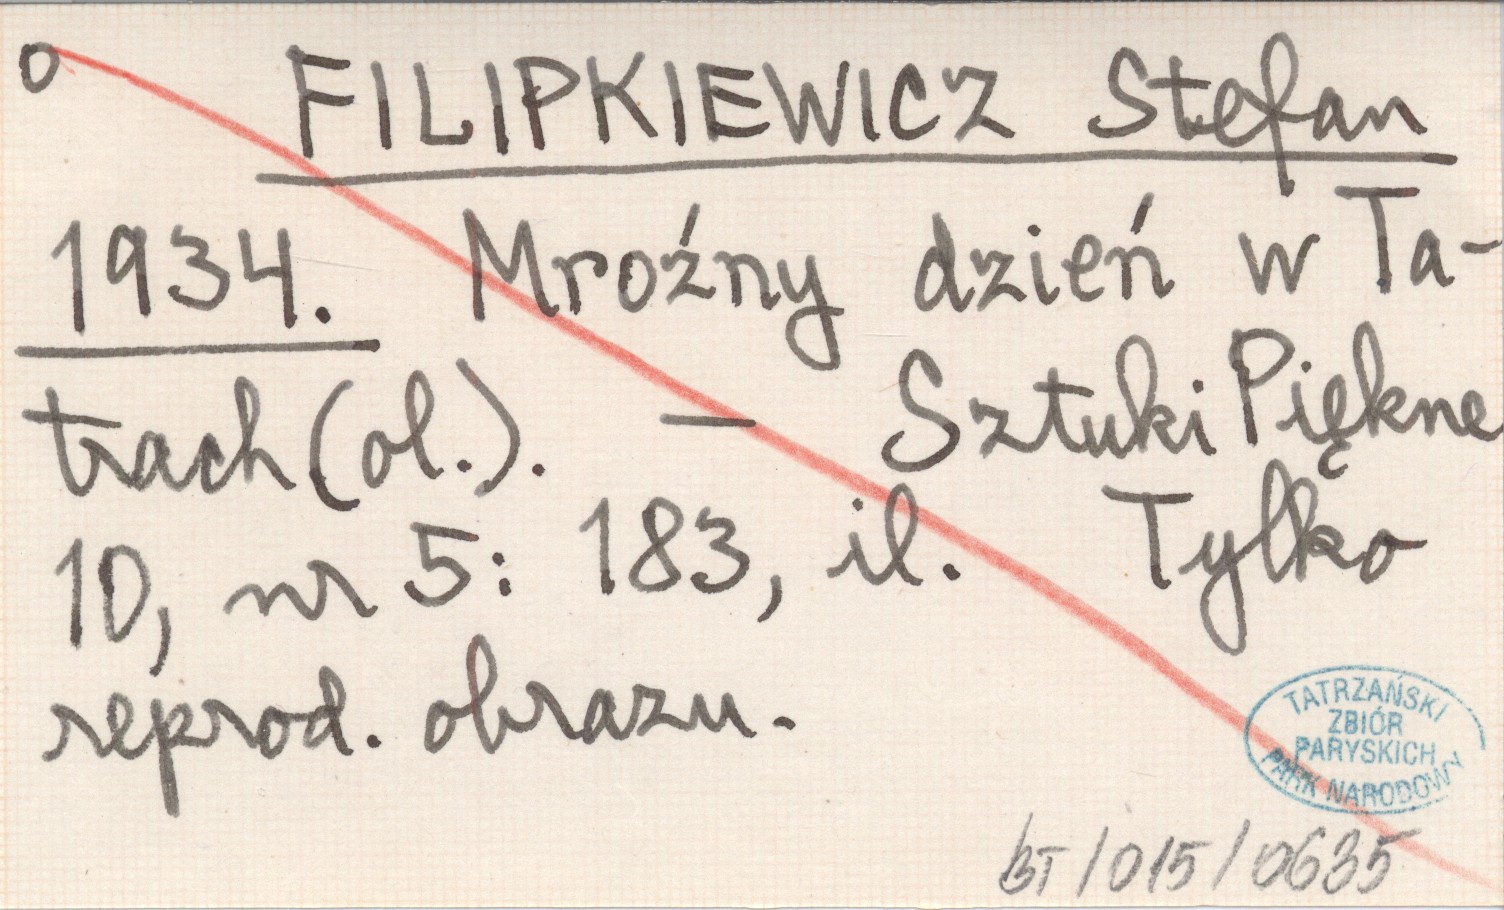 o FILIPKIEWICZ Stefan
1934. Mroźny dzień w Ta-
trach (ol.). — Sztuki Piękne
10, nr 5: 183, il. Tylko
reprod. obrazu.
TATRZAŃSKI
ZBIÓR
PARYSKICH
PARK NARODOWY
BT/015/0635